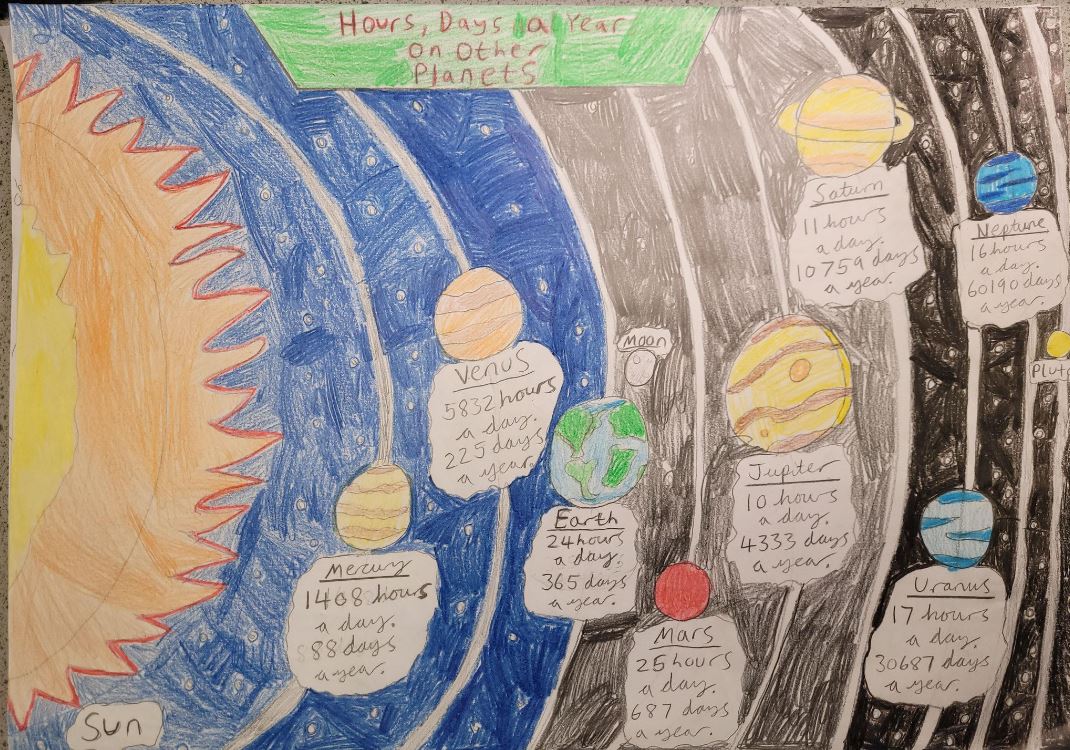 Hours, Days a Year
on Other
Planets
Sun
Mercury
1408 hours
a day.
88 days
a year.
Venus
5832 hours
a day.
225 days
a year.
Moon
Earth
24 hours
a day.
365 days
a year.
Mars
25 hours
a day.
687 days
a year.
Jupiter
10 hours
a day.
4333 days
a year.
Saturn
11 hours
a day.
10759 days
a year.
Uranus
17 hours
a day.
30687 days
a year.
Neptune
16 hours
a day.
60190 days
a year.
Pluto